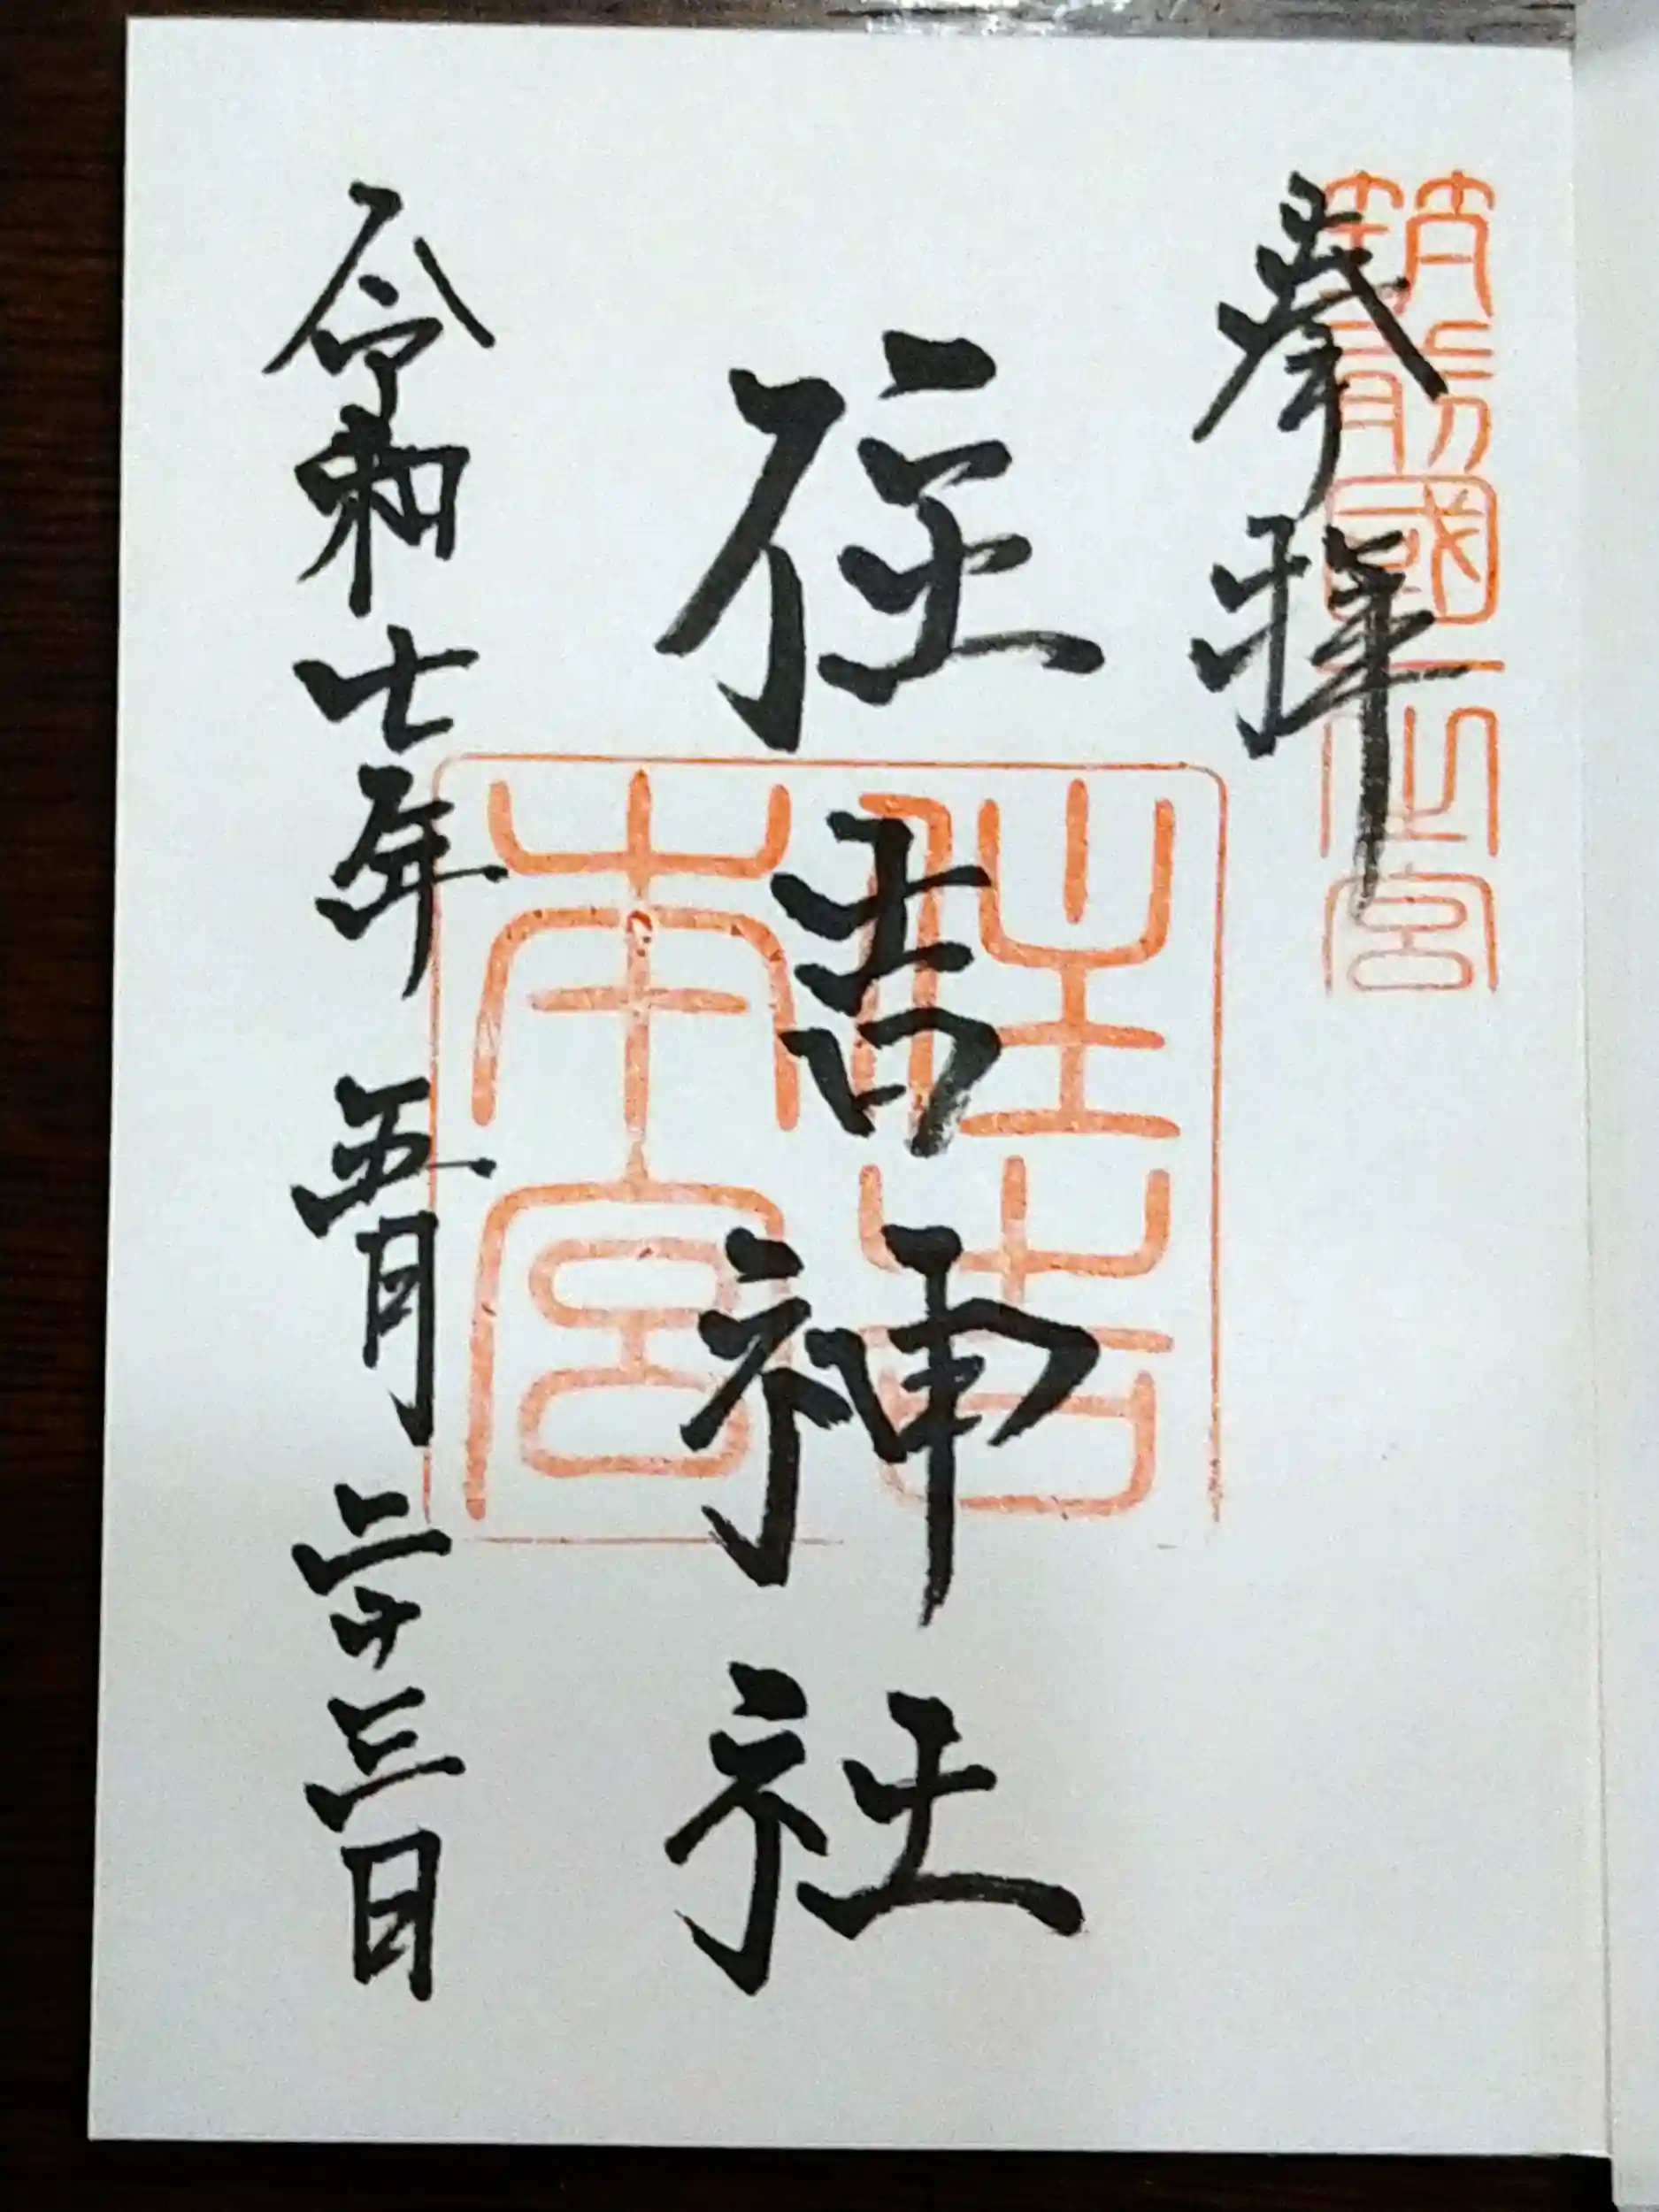 筑前國一之宮
奉拝
住吉神社
住吉
本宮
令和七年 五月 二十三日